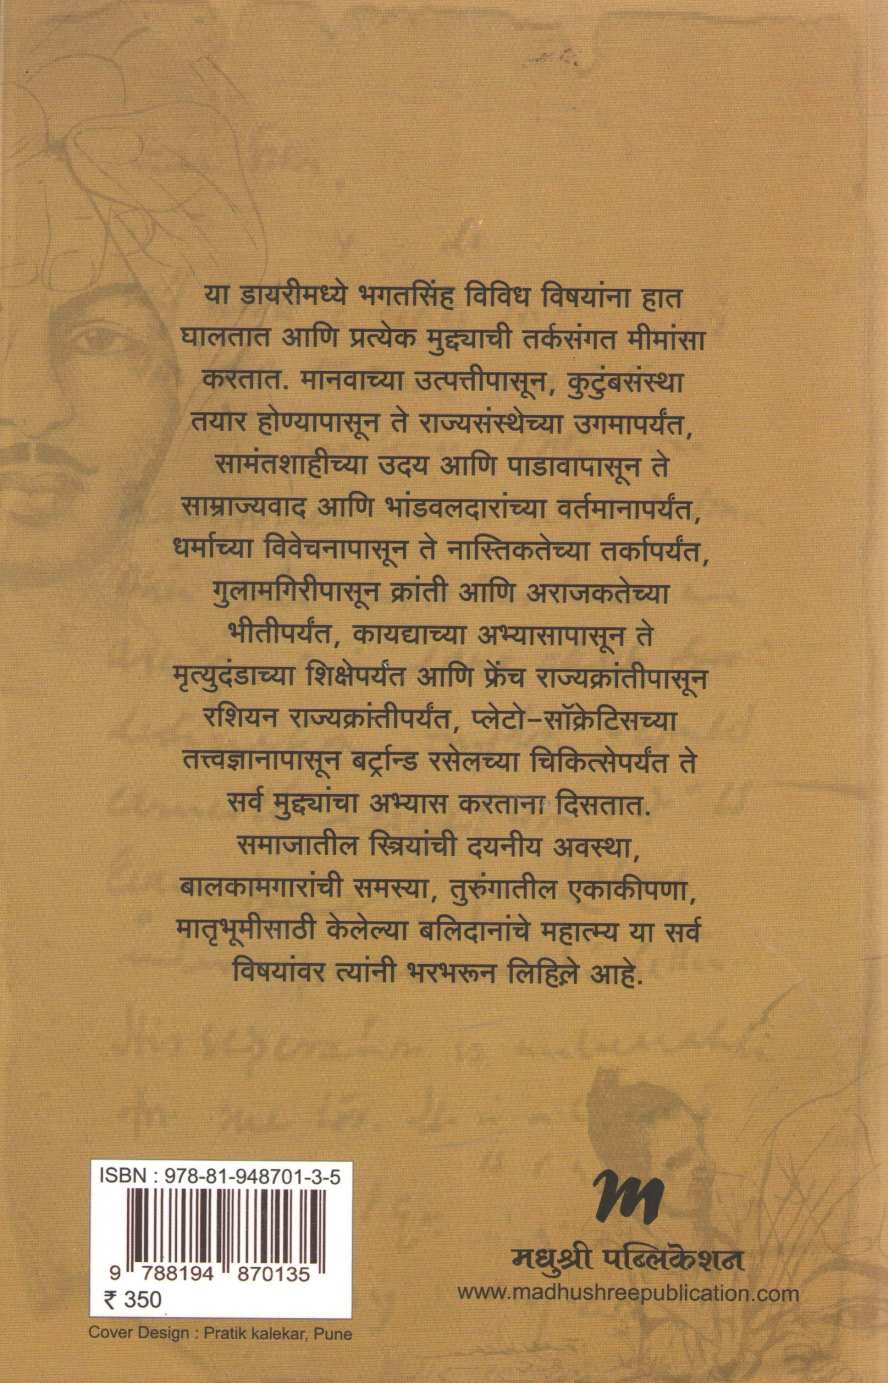 या डायरीमध्ये भगतसिंह विविध विषयांना हात
घालतात आणि प्रत्येक मुद्द्याची तर्कसंगत मीमांसा
करतात. मानवाच्या उत्पत्तीपासून, कुटुंबसंस्था
तयार होण्यापासून ते राज्यसंस्थेच्या उगमापर्यंत,
सामंतशाहीच्या उदय आणि पाडावापासून ते
साम्राज्यवाद आणि भांडवलदारांच्या वर्तमानापर्यंत,
धर्माच्या विवेचनापासून ते नास्तिकतेच्या तर्कापर्यंत,
गुलामगिरीपासून क्रांती आणि अराजकतेच्या
भीतीपर्यंत, कायद्याच्या अभ्यासापासून ते
मृत्युदंडाच्या शिक्षेपर्यंत आणि फ्रेंच राज्यक्रांतीपासून
रशियन राज्यक्रांतीपर्यंत, प्लेटो-सॉक्रेटिसच्या
तत्त्वज्ञानापासून बर्ट्रान्ड रसेलच्या चिकित्सेपर्यंत ते
सर्व मुद्द्यांचा अभ्यास करताना दिसतात.
समाजातील स्त्रियांची दयनीय अवस्था,
बालकामगारांची समस्या, तुरुंगातील एकाकीपणा,
मातृभूमीसाठी केलेल्या बलिदानांचे महात्म्य या सर्व
विषयांवर त्यांनी भरभरून लिहिले आहे.
ISBN : 978-81-948701-3-5
9 788194 870135
₹ 350
Cover Design : Pratik kalekar, Pune
m
मधुश्री पब्लिकेशन
www.madhushreepublication.com